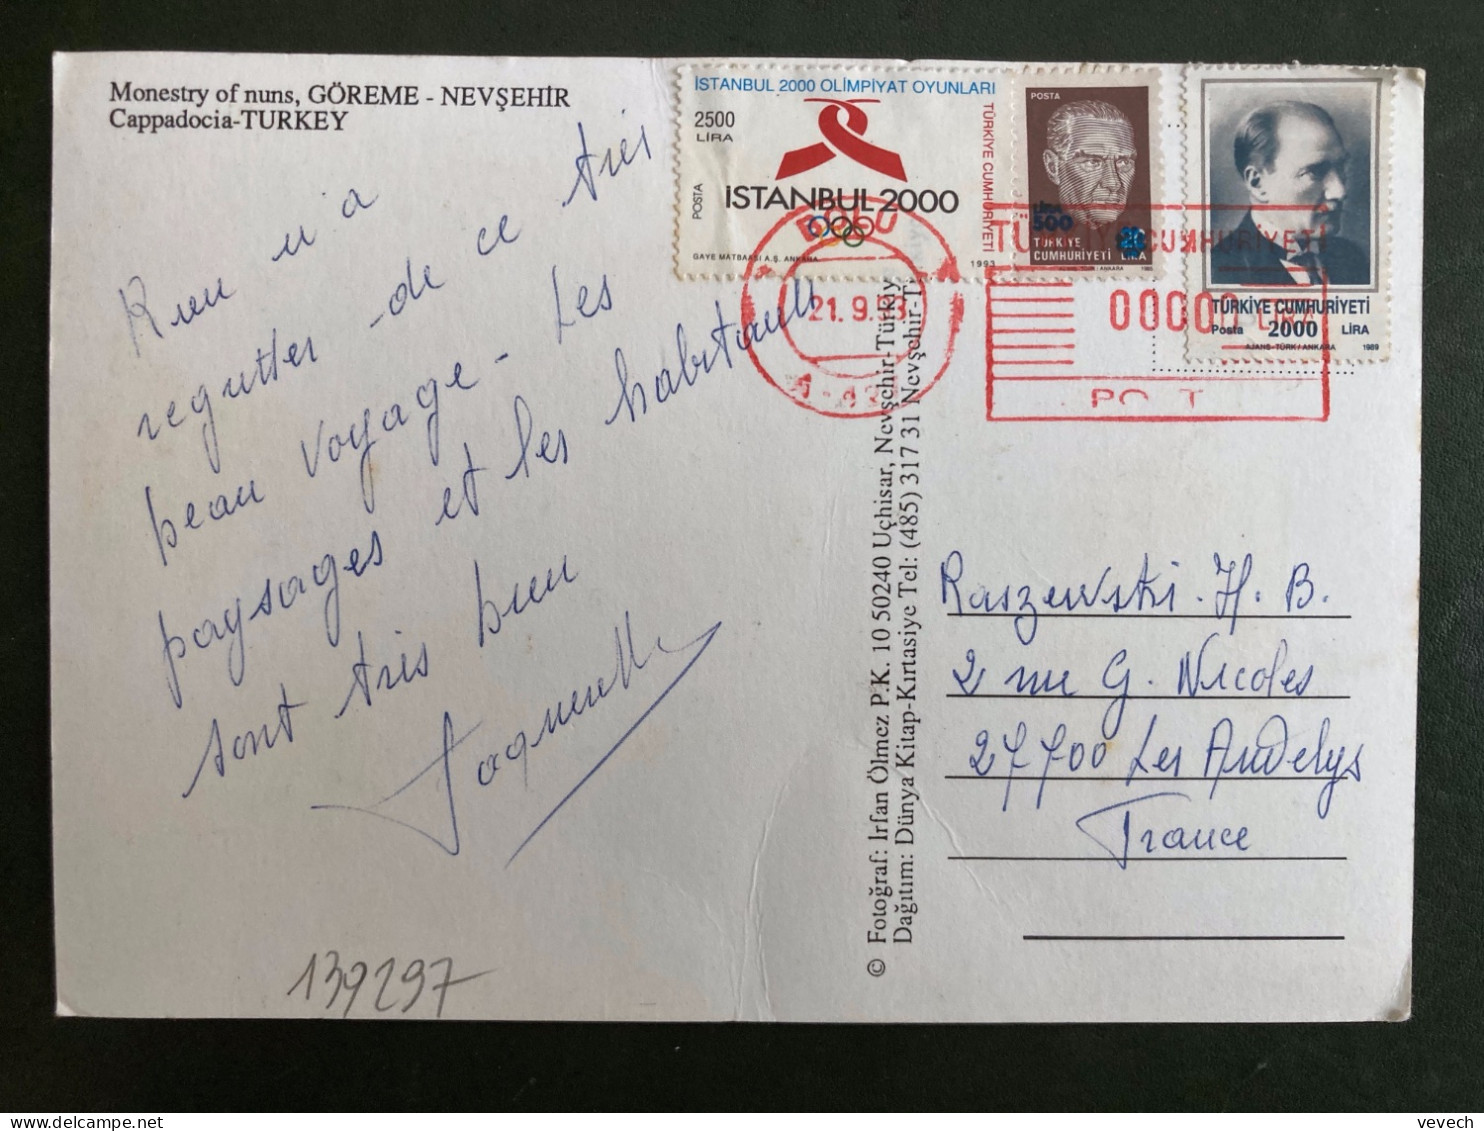 Monestry of nuns, GÖREME - NEVŞEHİR
Cappadocia-TURKEY
Rien n'a
regretter de ce très
beau voyage - Les
paysages et les habitants
sont très bien
Jacqueline
139297
İSTANBUL 2000 OLİMPİYAT OYUNLARI
2500
LİRA
POSTA
İSTANBUL 2000
TÜRKİYE CUMHURİYETİ
GAYE MATBAASI A.Ş. ANKARA
1993
POSTA
LİRA
500
TÜRKİYE
CUMHURİYETİ
20
LİRA
AJANS-TÜRK / ANKARA
TÜRKİYE CUMHURİYETİ
Posta 2000 LİRA
AJANS-TÜRK / ANKARA 1989
BOLU
21.9.93
TÜRKİYE CUMHURİYETİ
00000 LİRA
© Fotoğraf: Irfan Ölmez P.K. 10 50240 Uçhisar, Nevşehir-Türkiy
Dağıtım: Dünya Kitap-Kırtasiye Tel: (485) 317 31 Nevşehir-T
Raszewski. H. B.
2 rue G. Nicoles
27700 Les Andelys
France
vevech